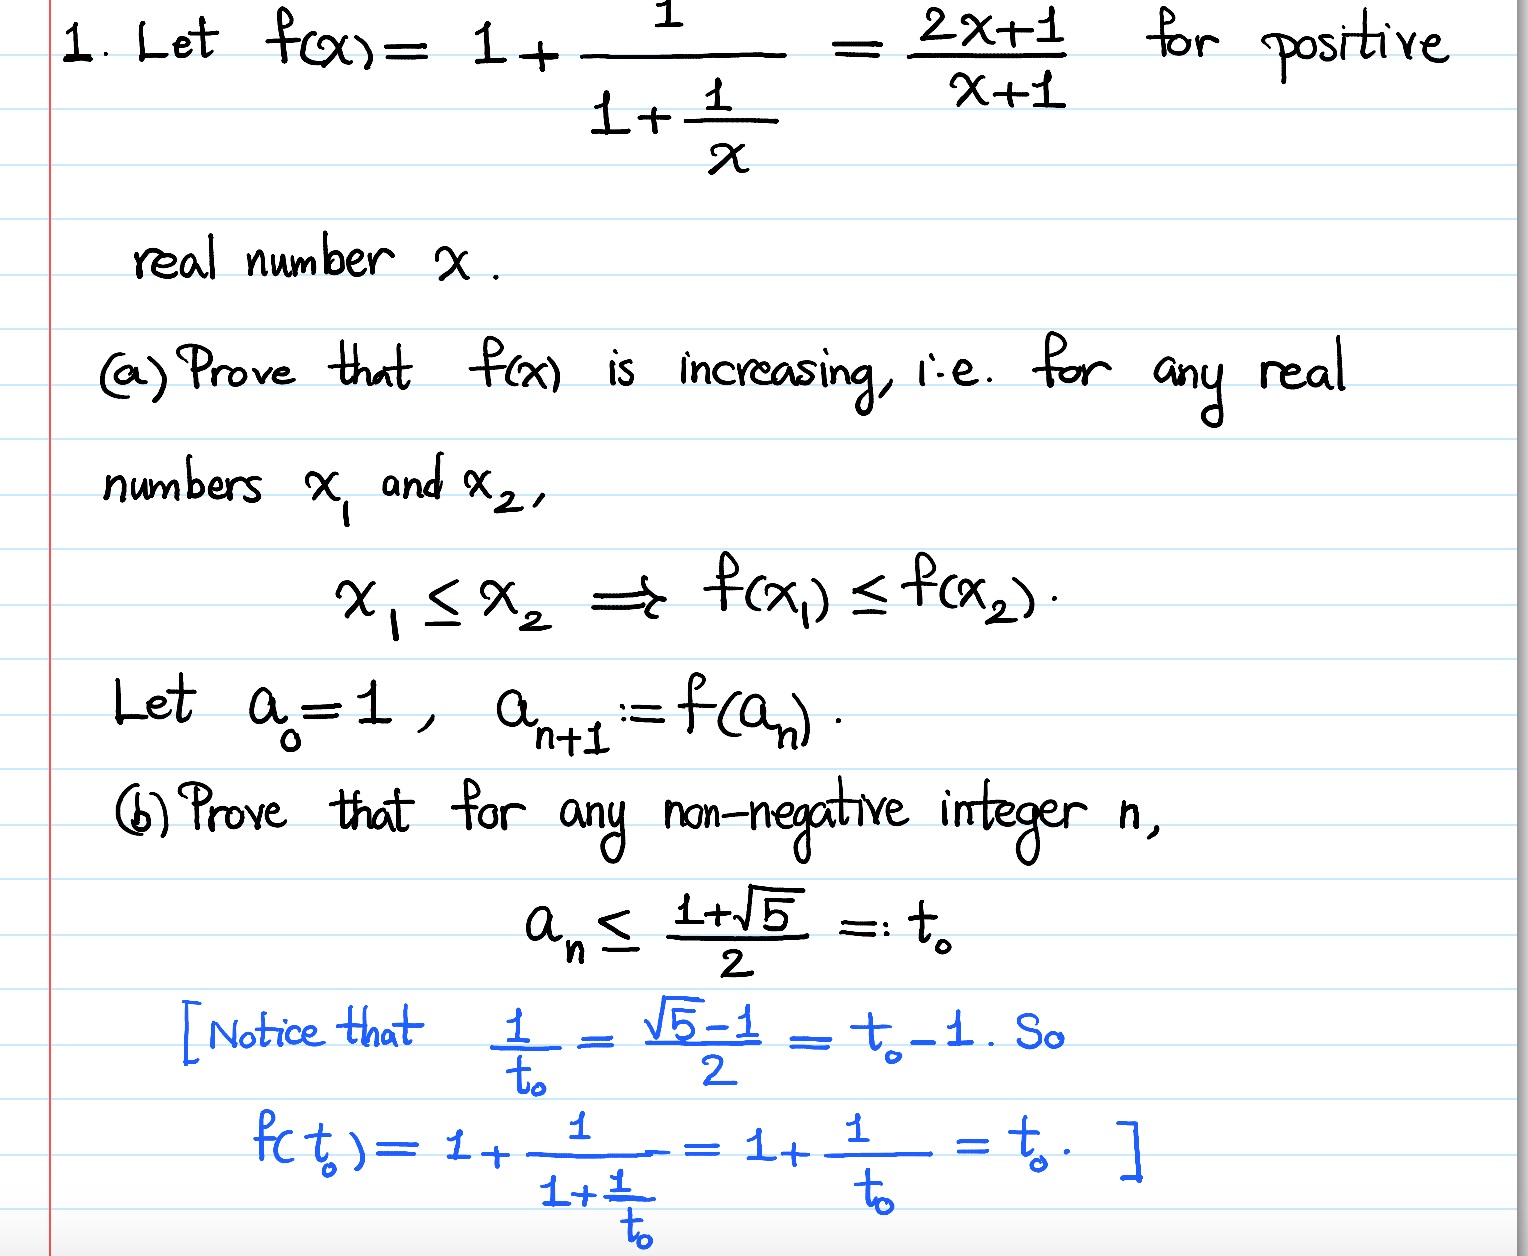 1. Let f(x) = 1 + 1/(1 + 1/x) = (2x+1)/(x+1) for positive
real number x.
(a) Prove that f(x) is increasing, i.e. for any real
numbers x₁ and x₂,
x₁ ≤ x₂ ⇒ f(x₁) ≤ f(x₂).
Let a₀ = 1, aₙ₊₁ := f(aₙ).
(b) Prove that for any non-negative integer n,
aₙ ≤ (1+√5)/2 =: t₀
[Notice that 1/t₀ = (√5-1)/2 = t₀-1. So
f(t₀) = 1 + 1/(1 + 1/t₀) = 1 + 1/t₀ = t₀. ]